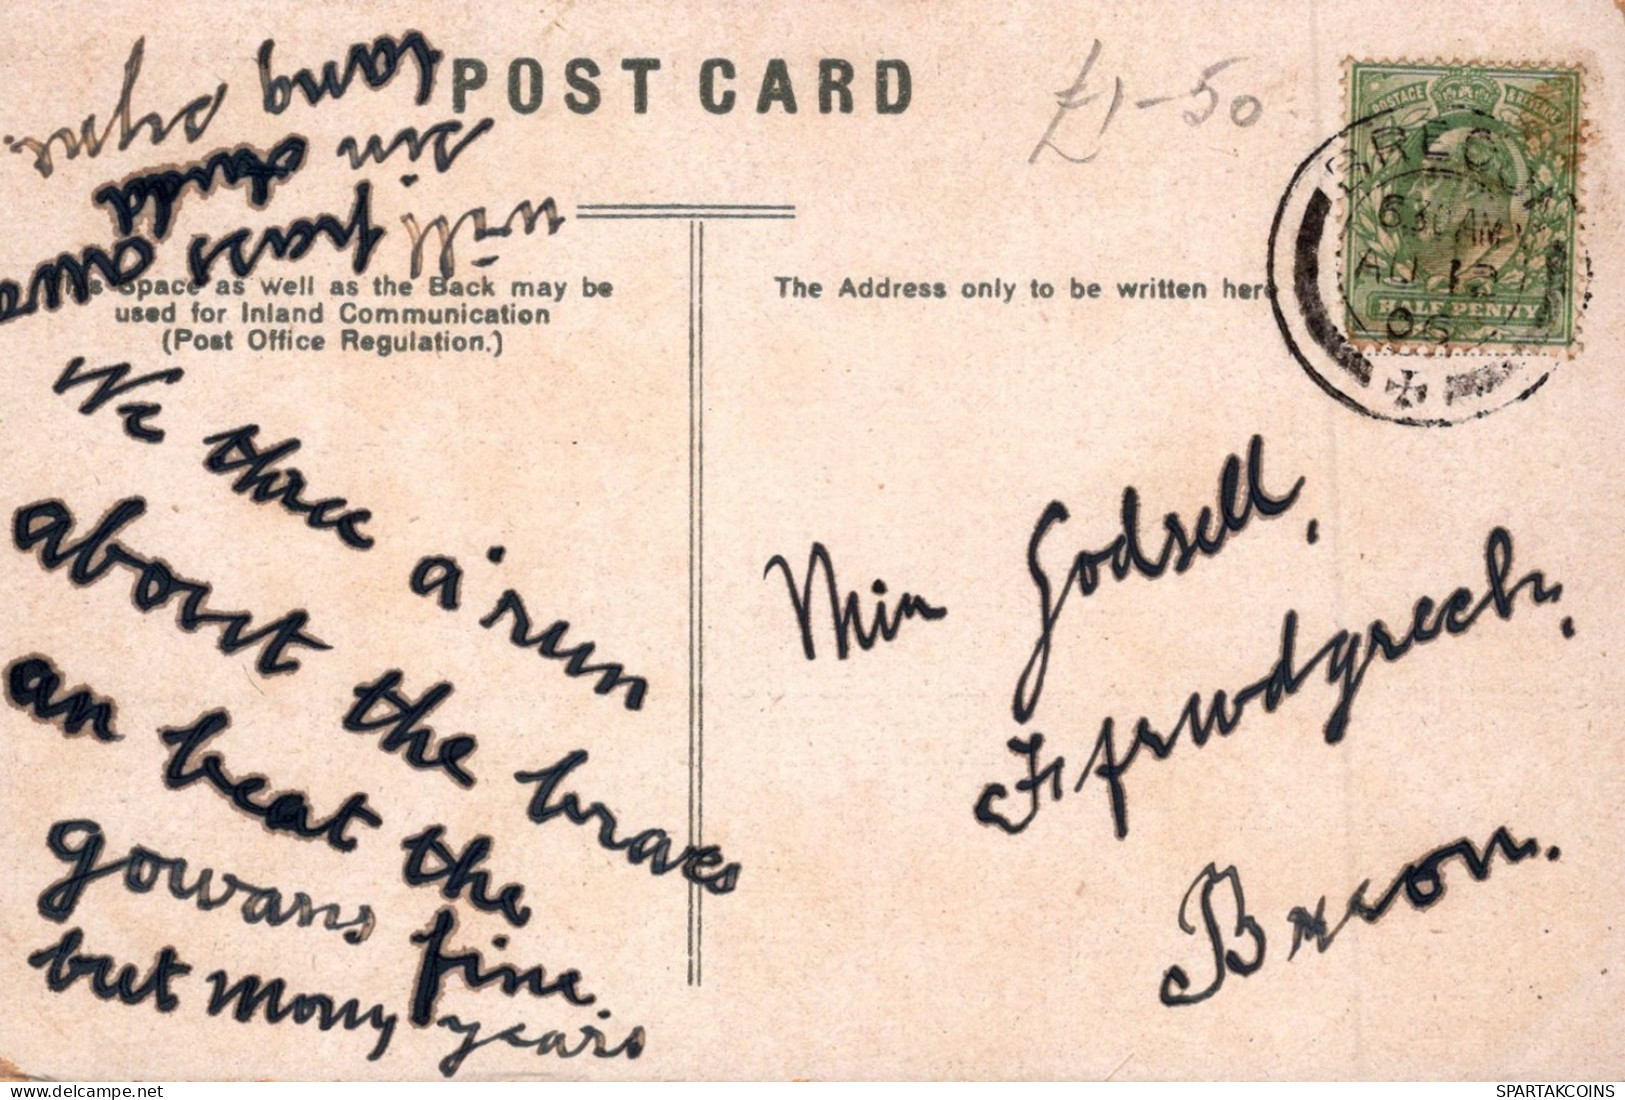 POST CARD
£1-50
This Space as Well as the Back may be
used for Inland Communication
(Post Office Regulation.)
The Address only to be written here
POSTAGE
HALFPENNY
BRECON
6.30 AM
AU 13
06
We three a'run
about the braes
an beat the
gowans fine
but mony years
will pass awa
sin auld
lang syne.
Miss Godsell,
Ffrwdgrech,
Brecon.
SPARTAKCOINS